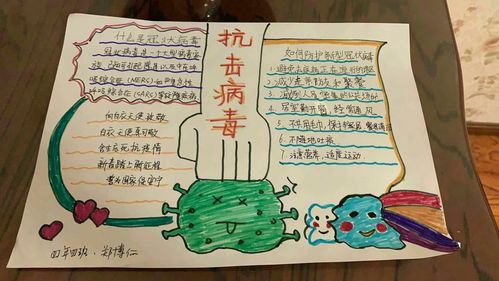 什么是冠状病毒
冠状病毒是一个大型病毒家
族，已知可引起感冒以及中东呼
吸综合征（MERC）和严重急性
呼吸综合征（SARC）等较严重疾病
向白衣天使致敬
白衣天使真可敬
舍生忘死抗疫情
新春踏上新征程
誓为国家保安宁
抗击病毒
如何防护新型冠状病毒
1.避免去疾病正在流行的地区
2.减少走亲访友和聚餐
3.减少到人员密集的公共场所
4.居室勤开窗，经常通风
5.不共用毛巾，保持家居、餐具清洁
6.不随地吐痰
7.注意营养，适度运动
四年四班：郑博仁